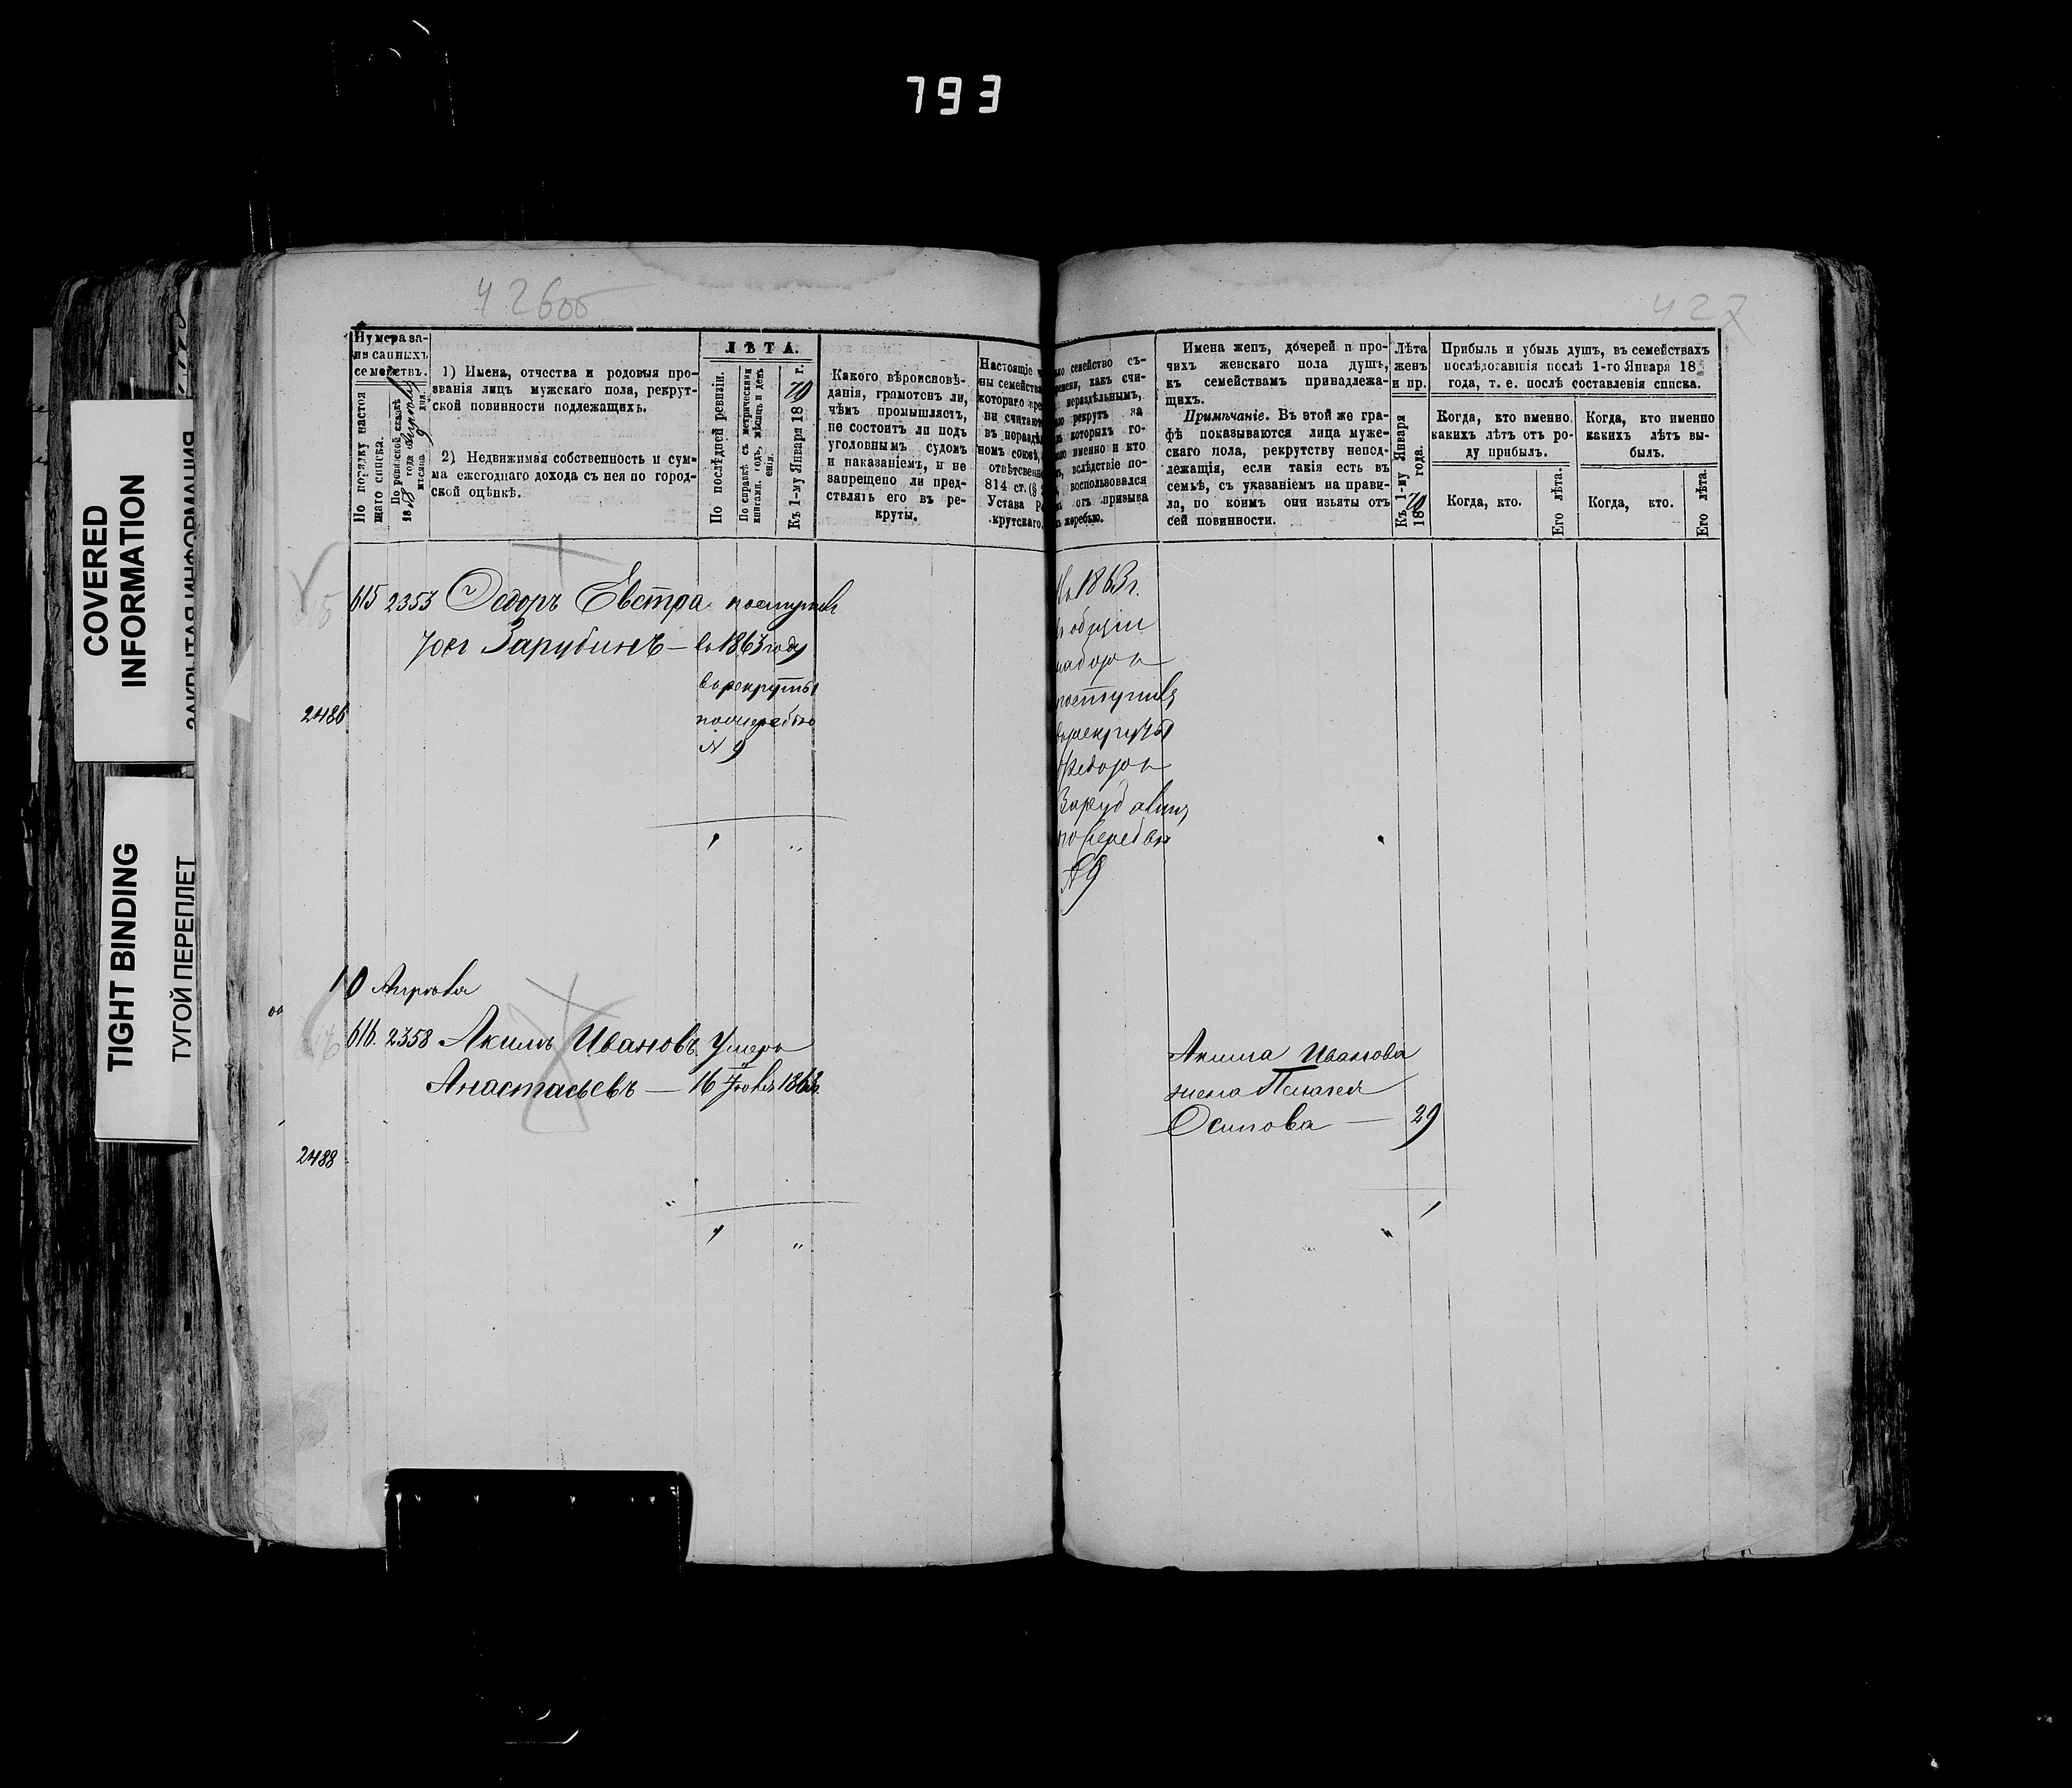 793
COVERED
INFORMATION
TIGHT BINDING
ТУГОЙ ПЕРЕПЛЕТ
426об
427
Нумера за-
писанныхъ
семействъ.
По порядку настоя
щаго списка.
По ревизской сказкѣ
1858 года
мѣсяца 9 дня.
1) Имена, отчества и родовыя про-
званія лицъ мужскаго пола, рекрут-
ской повинности подлежащихъ.
2) Недвижимая собственность и сум-
ма ежегоднаго дохода съ нея по город-
ской оцѣнкѣ.
ЛѢТА.
По послѣдней ревизіи.
По справкѣ съ метрическими
книгами, годъ, мѣсяцъ и день
Къ 1-му Января 1870 г.
Какого вѣроисновѣ-
данія, грамотенъ ли,
чѣмъ промышляетъ,
не состоитъ ли подъ
уголовнымъ судомъ
и наказаніемъ, и не
запрещено ли пред-
ставлять его въ ре-
круты.
Настоящіе
ны семейства
котораго
ни считают
въ нераздѣ
номъ союзѣ,
отвѣтственн
814 ст. (§
Устава Р
крутскаго.
семейство съ-
какъ счи-
нераздѣльнымъ,
рекрутъ за
которыхъ го-
именно и кто
вслѣдствіе по-
воспользовался
отъ призыва
жеребью.
Имена женъ, дочерей и про-
чихъ женскаго пола душъ,
къ семействамъ принадлежа-
щихъ.
Примѣчаніе. Въ этой же гра-
фѣ показываются лица муже-
скаго пола, рекрутству непод-
лежащія, если такія есть въ
семьѣ, съ указаніемъ на прави-
ла, по коимъ они изъяты отъ
сей повинности.
Лѣта
женъ
и пр.
Къ 1-му Января
1870 года.
Прибыль и убыль душъ, въ семействахъ
послѣдовавшія послѣ 1-го Января 18
года, т. е. послѣ составленія списка.
Когда, кто именно
какихъ лѣтъ отъ ро-
ду прибылъ.
Когда, кто именно
какихъ лѣтъ вы-
былъ.
Когда, кто.
Его лѣта.
Когда, кто.
Его лѣта.
615 2353 Ѳедоръ Евстра поступилъ
Зарубинъ — въ 1863 году
въ рекруты
по жеребью
№ 9
2486
Въ 1863 г.
въ общій
наборъ
поступилъ
въ рекруты
Ѳедоръ
по жеребью
№ 9
616. 2358 Акимъ Ивановъ Умеръ
Анастасьевъ — 16 1863
2488
Акима Иванова
жена Пелагея
Осипова — 29
1